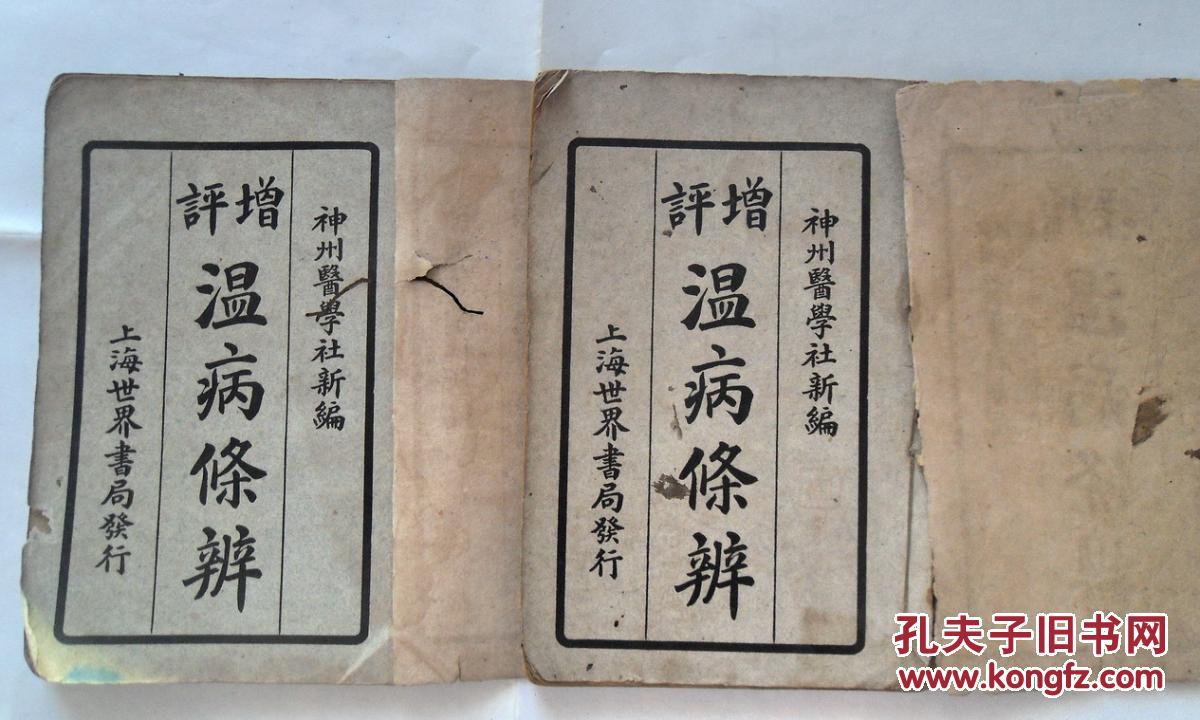 神州醫學社新編
增評
温病條辨
上海世界書局發行
神州醫學社新編
增評
温病條辨
上海世界書局發行
孔夫子旧书网
www.kongfz.com